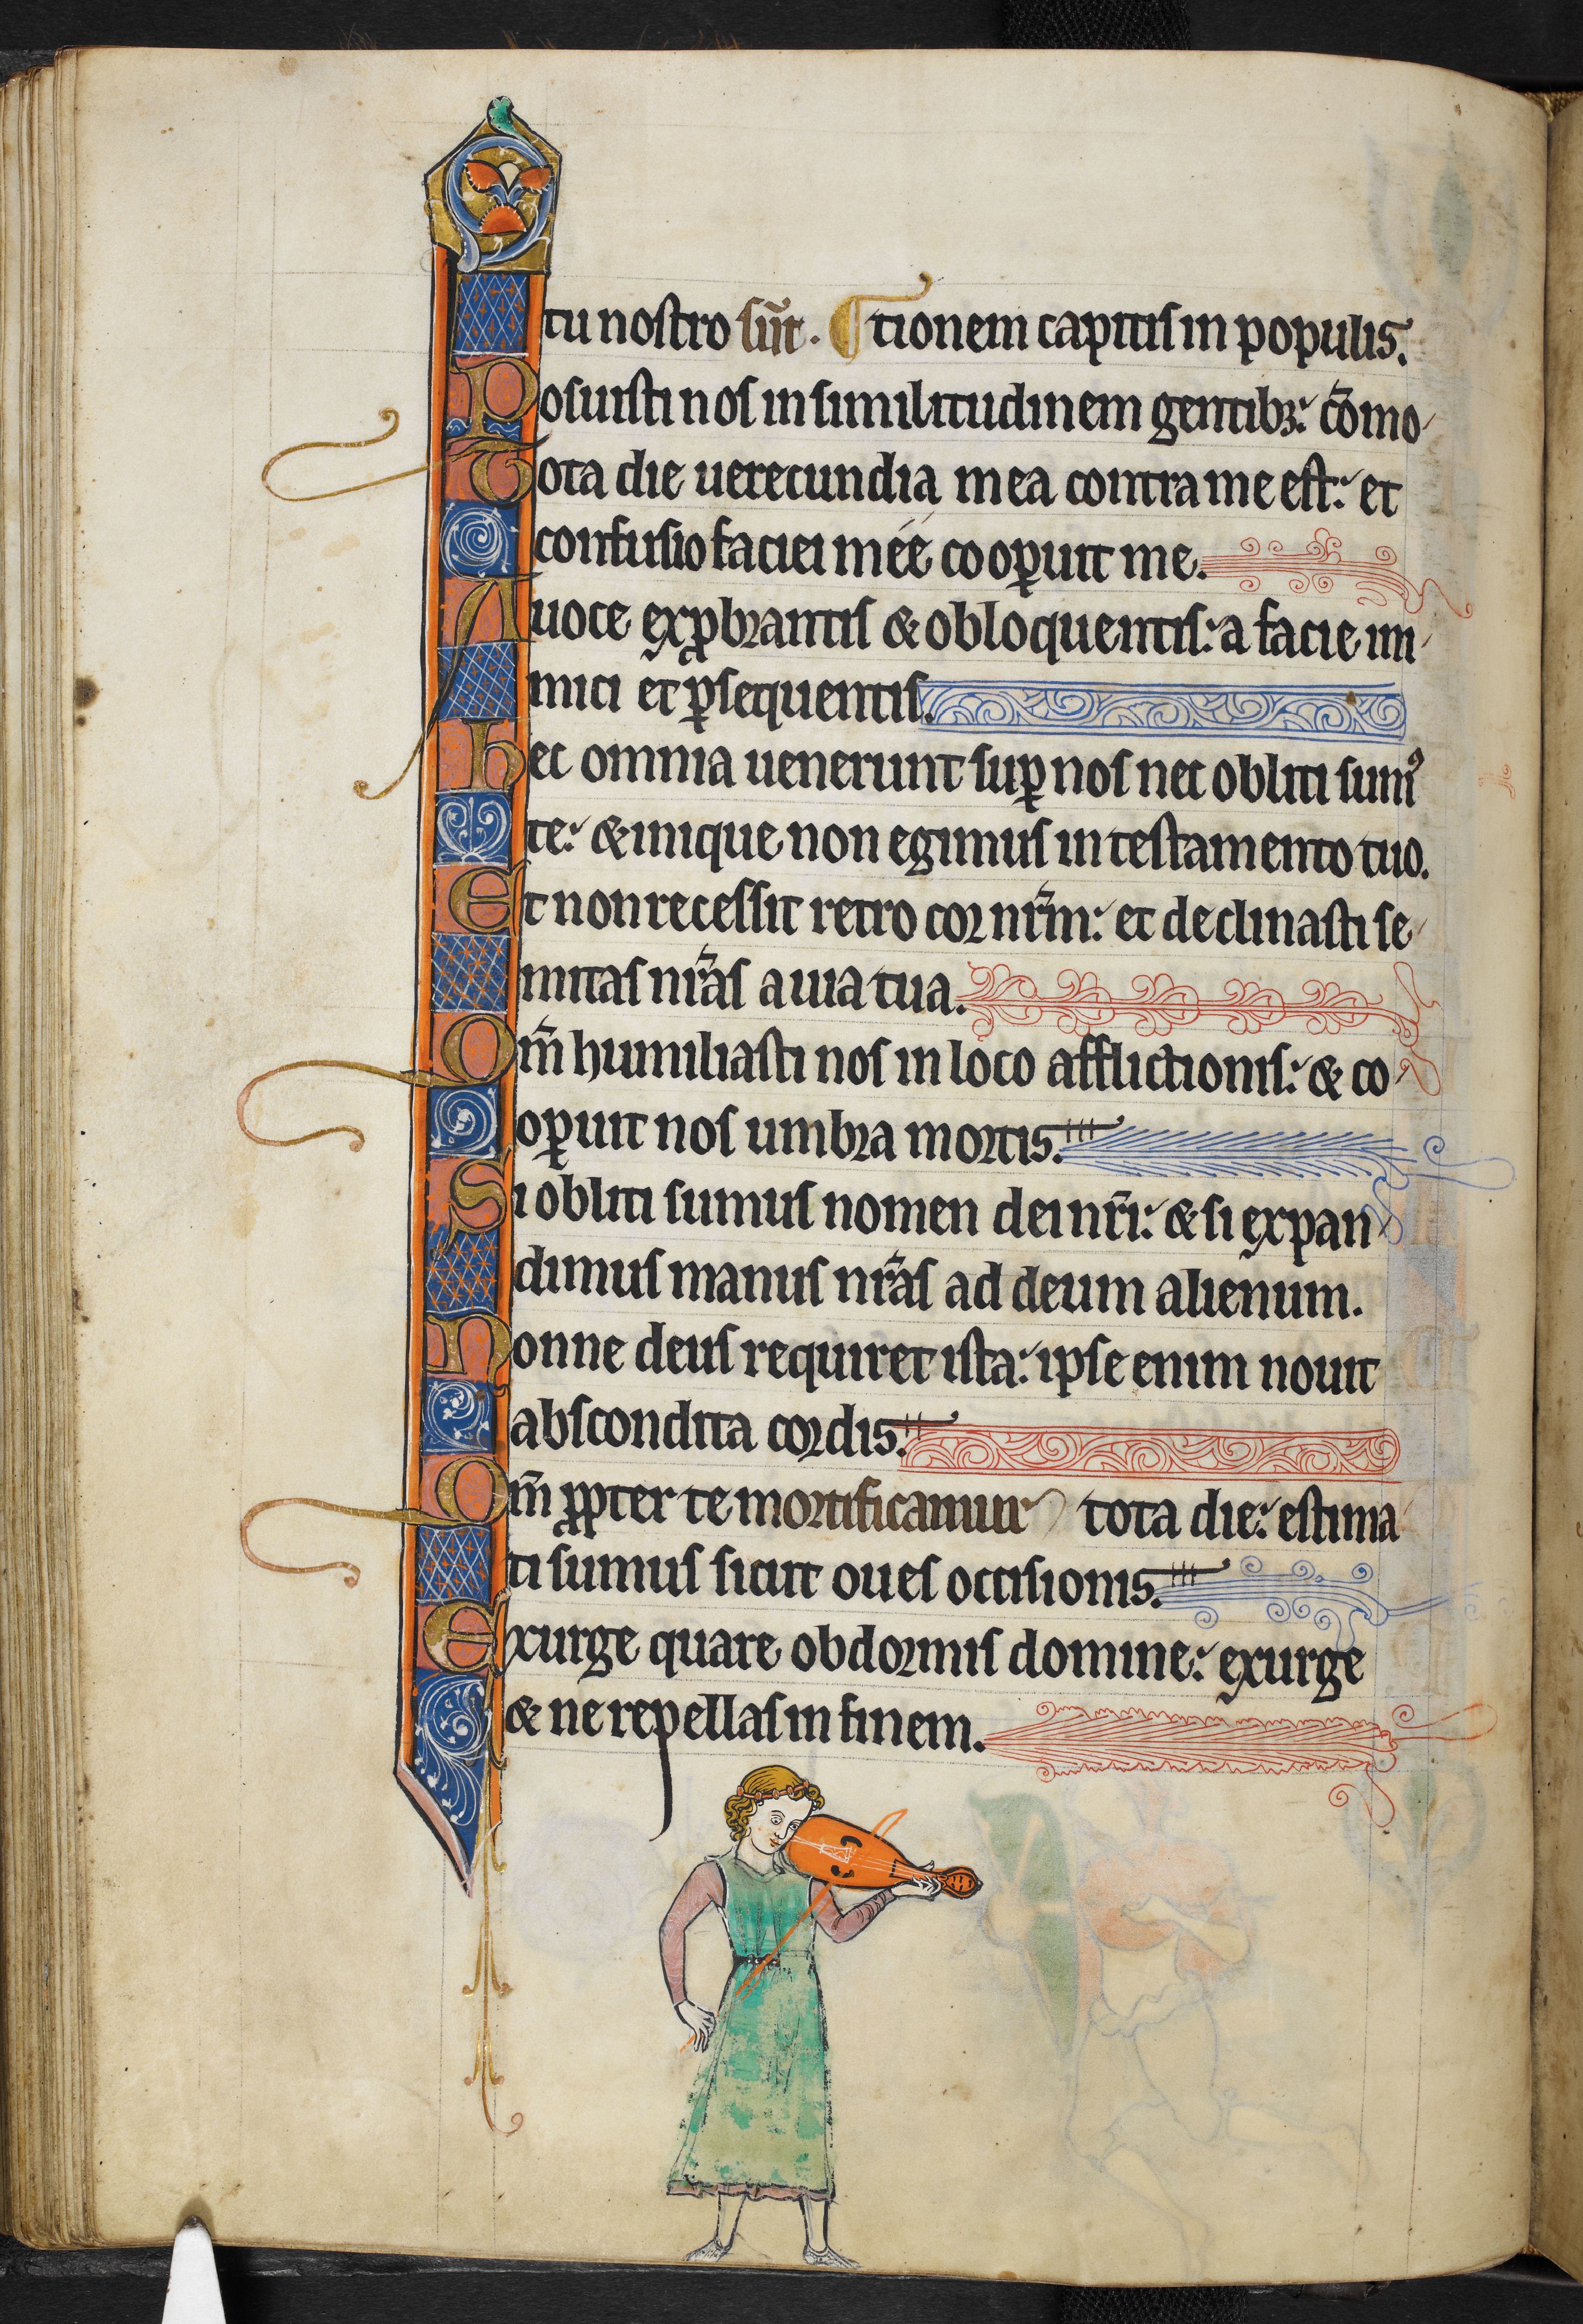 tu nostro sūt. ¶ tionem capitis in populis.
Posuisti nos in similitudinem gentibꝫ: cōmo
Tota die uerecundia mea contra me est: et
confusio faciei meé cooꝑuit me.
A uoce exꝓbrantis & obloquentis: a facie ini
mici et ꝑsequentis.
Hec omnia uenerunt suꝑ nos nec obliti sumꝰ
te: & inique non egimus in testamento tuo.
Et non recessit retro cor nr̄m: et declinasti se
mitas nr̄as a uia tua.
Qm̄ humiliasti nos in loco afflictionis: & co
oꝑuit nos umbra mortis.
Si obliti sumus nomen dei nr̄i: & si expan
dimus manus nr̄as ad deum alienum.
Nonne deus requiret ista: ipse enim nouit
abscondita cordis.
Qm̄ ꝓpter te mortificamur tota die: estima
ti sumus sicut oues occisionis.
Exurge quare obdormis domine: exurge
& ne repellas in finem.